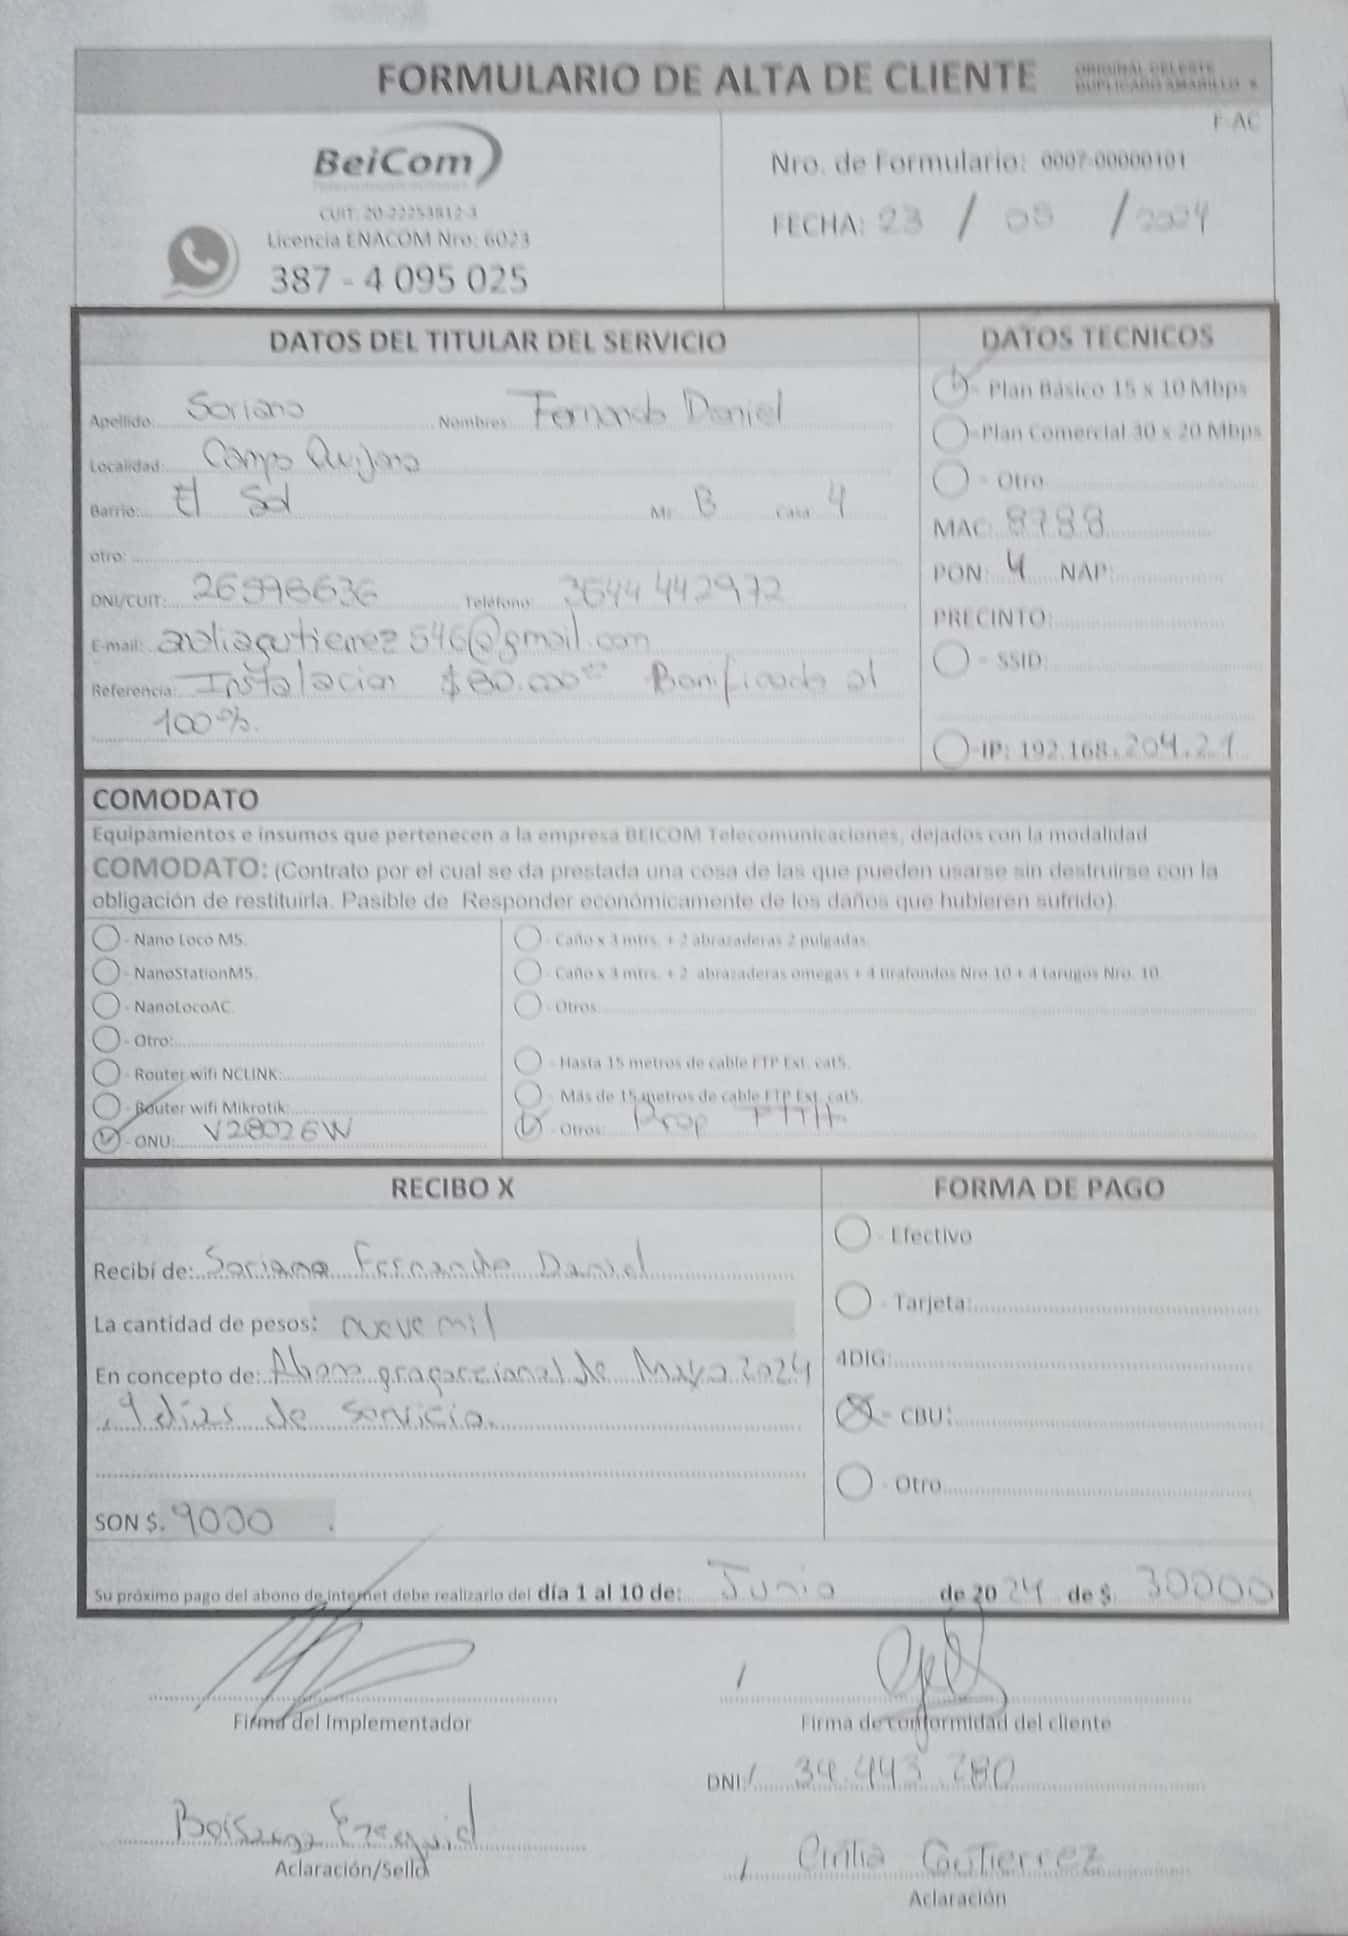 FORMULARIO DE ALTA DE CLIENTE
ORIGINAL CELESTE
DUPLICADO AMARILLO
F-AC
BeiCom
CUIT: 20-22253812-3
Licencia ENACOM Nro: 6023
387 - 4 095 025
Nro. de Formulario: 0007-00000101
FECHA: 23 / 05 / 2024
DATOS DEL TITULAR DEL SERVICIO
Apellido: Soriano Nombres: Fernando Daniel
Localidad: Campo Quijano
Barrio: El Sol Mz B Casa 4
otro:
DNI/CUIT: 26596636 Teléfono: 3644 442972
E-mail: @gmail.com
Referencia: Instalacion $80.000 Bonificado al
100%.
DATOS TECNICOS
- Plan Básico 15 x 10 Mbps
- Plan Comercial 30 x 20 Mbps
- Otro
MAC: 8788
PON: 4 NAP:
PRECINTO:
- SSID:
- IP: 192.168.204.21
COMODATO
Equipamientos e insumos que pertenecen a la empresa BEICOM Telecomunicaciones, dejados con la modalidad
COMODATO: (Contrato por el cual se da prestada una cosa de las que pueden usarse sin destruirse con la
obligación de restituirla. Pasible de Responder económicamente de los daños que hubieren sufrido).
- Nano Loco M5.
- NanoStationM5.
- NanoLocoAC.
- Otro:
- Router wifi NCLINK:
- Router wifi Mikrotik:
- ONU: V2802GW
- Caño x 3 mtrs. + 2 abrazaderas 2 pulgadas.
- Caño x 3 mtrs. + 2 abrazaderas omegas + 4 tirafondos Nro 10 + 4 tarugos Nro. 10
- Otros:
- Hasta 15 metros de cable FTP Ext. cat5.
- Más de 15 metros de cable FTP Ext. cat5.
- Otros: Drop FTTH
RECIBO X
Recibí de: Soriano Fernando Daniel
La cantidad de pesos: nueve mil
En concepto de: Abono proporcional de Mayo 2024
9 dias de servicio.
SON $. 9000
FORMA DE PAGO
- Efectivo
- Tarjeta:
4DIG:
- CBU:
- Otro
Su próximo pago del abono de internet debe realizarlo del día 1 al 10 de: Junio de 2024 de $ 30000
Firma del Implementador
Firma de conformidad del cliente
DNI: 34.443.280
Ezequiel
Aclaración/Sello
Gutierrez
Aclaración